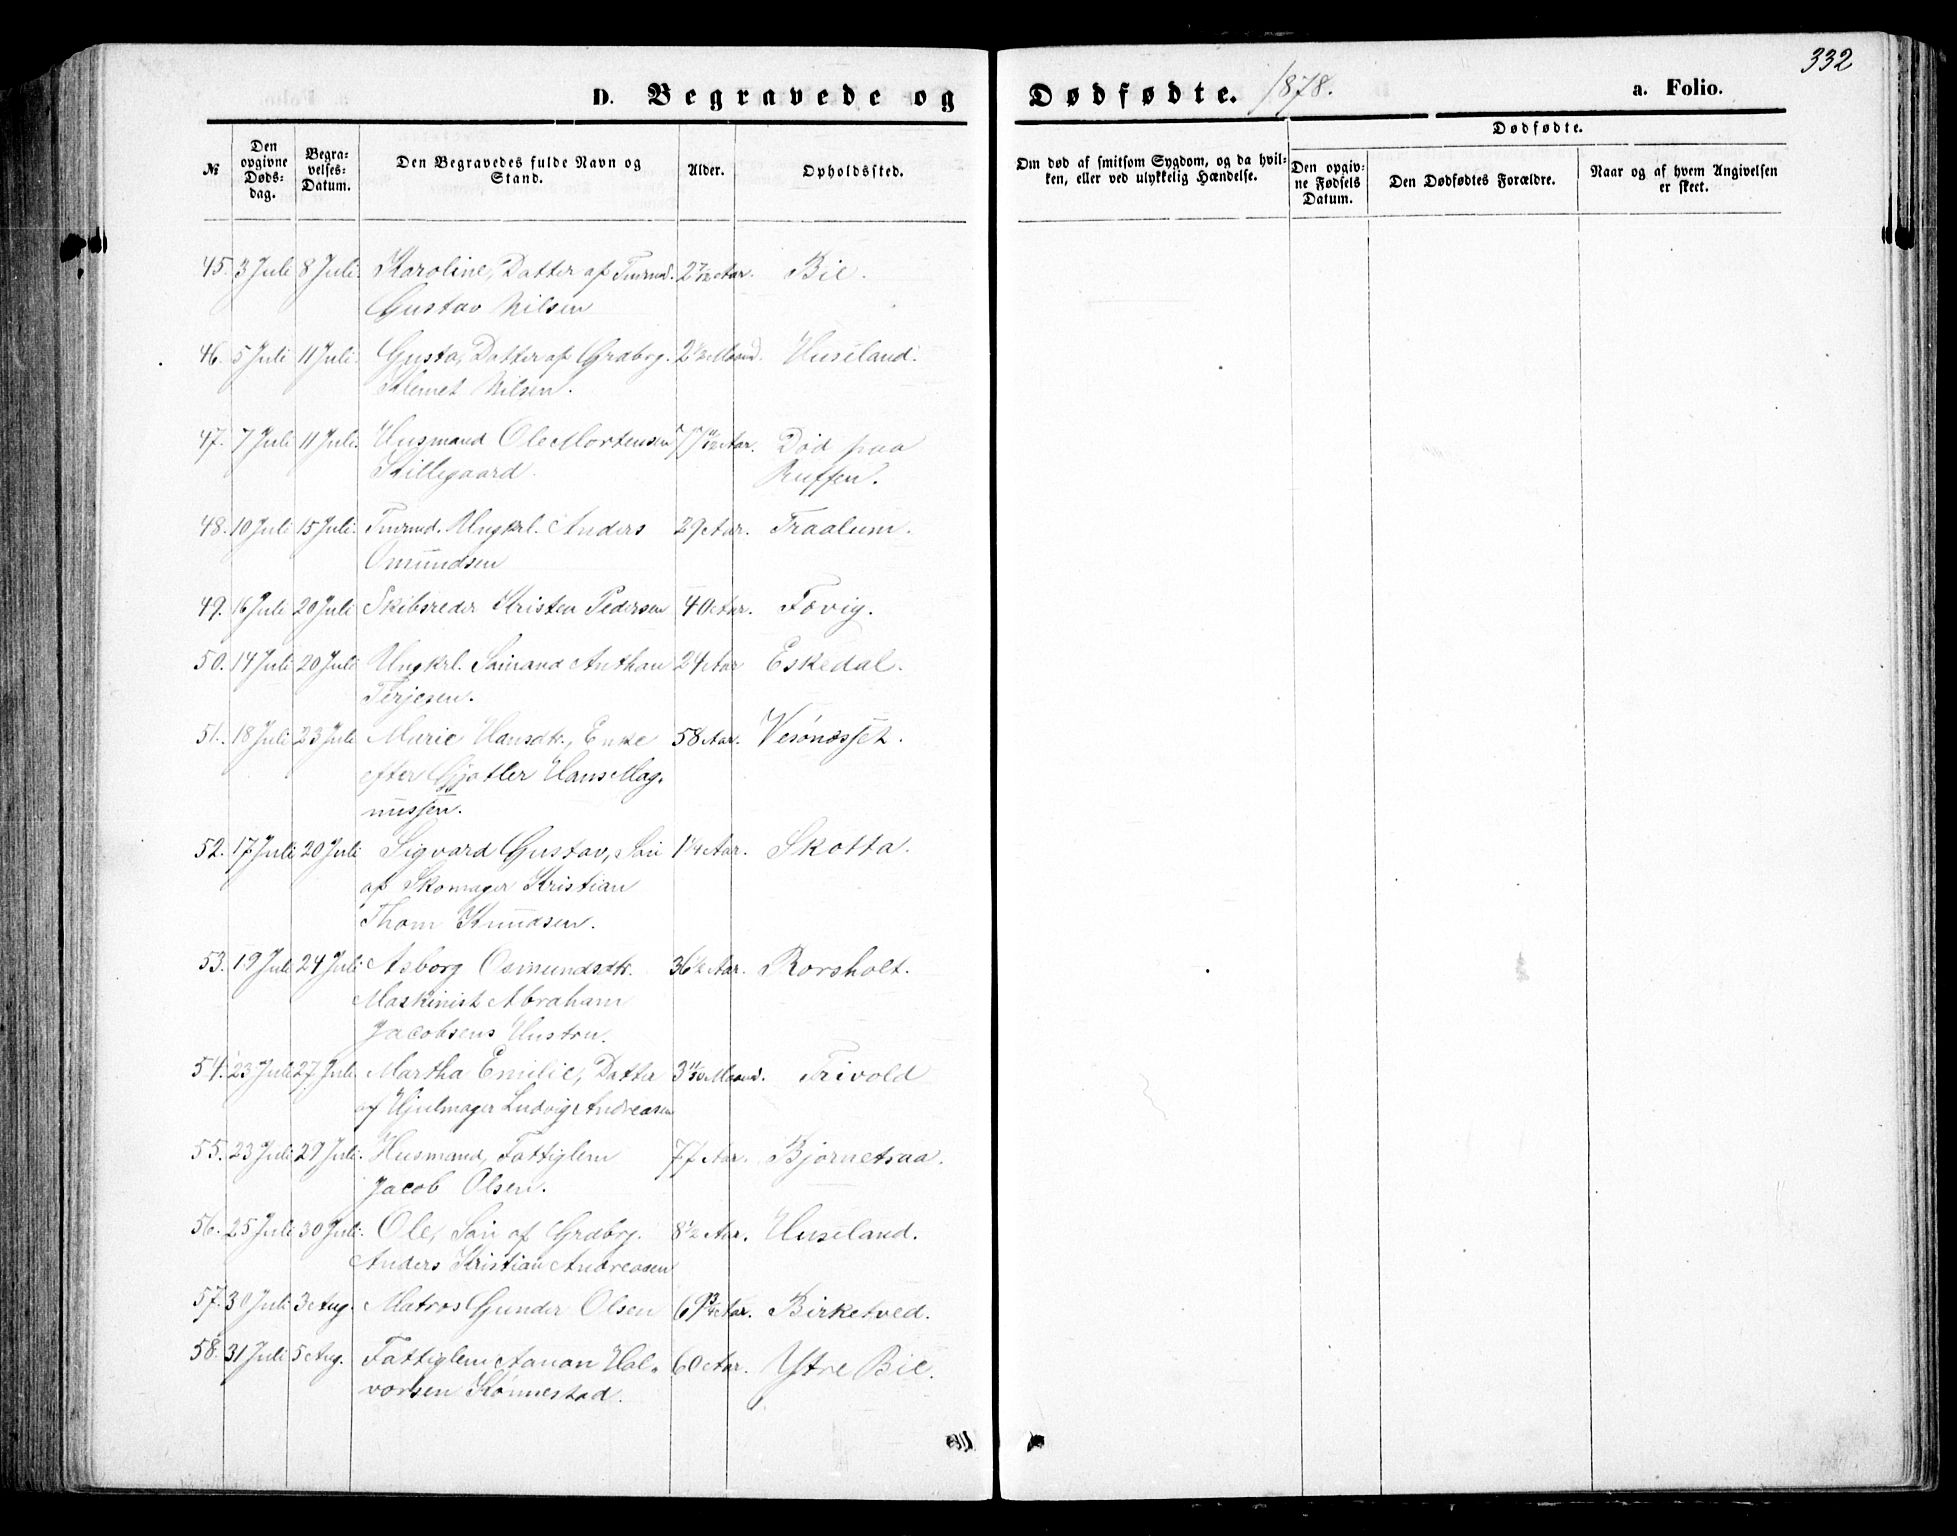 332
D. Begravede og Dødfødte. 1878. a. Folio.
№ Den opgivne Døds-dag. Begra-velses-Datum. Den Begravedes fulde Navn og Stand. Alder. Opholdssted.
Om død af smitsom Sygdom, og da hvil-ken, eller ved ulykkelig Hændelse.
Dødfødte.
Den opgiv-ne Fødsels Datum. Den Dødfødtes Forældre. Naar og af hvem Angivelsen er skeet.
45. 3 Juli 8 Juli. Karoline, Datter af Tmrmd. 2 7/12 Aar. Bie.
Gustav Nilsen
46. 5 Juli 11 Juli. Gusta, Datter af Grdbrg. 2 1/2 Maand. Huseland.
Klemet Nilsen.
47. 7 Juli 11 Juli. Husmand Ole Mortensen 77 11/12 Aar. Død paa
Killegaard Ruffen.
48. 10 Juli 15 Juli. Tmrmd. Ungkrl. Anders 29 Aar. Traalum.
Omundsen
49. 16 Juli 20 Juli Skibsreder Kristen Pedersen 40 Aar. Fevig.
50. 14 Juli 20 Juli Ungkrl. Samand Anthon 24 Aar Eskedal.
Terjesen.
51. 18 Juli 23 Juli Marie Hansdtr., Enke 58 Aar. Vesønæsset.
efter Gjøtler Hans Mag-
nussen.
52. 17 Juli 20 Juli Sigvard Gustav, Søn 1 1/4 Aar. Skotta.
af Skomager Kristian
Thom Knudsen.
53. 19 Juli 24 Juli Asborg Osmundsdtr. 36 1/2 Aar. Rorsholt.
Maskinist Abraham
Jacobsens Hustru.
54. 23 Juli 27 Juli. Martha Emilie, Datter 3 Maand. Trivold
af Hjulmager Ludvig Andreasen
55. 23 Juli 29 Juli. Husmand, Fattiglem 77 Aar. Bjørnetraa.
Jacob Olsen.
56. 25 Juli 30 Juli. Ole, Søn af Grdbrg. 8 1/2 Aar. Huseland.
Anders Kristian Andreasen
57. 30 Juli 3 Aug. Matros Gunder Olsen 69 3/4 Aar. Birketved.
58. 31 Juli 5 Aug. Fattiglem Aanon Hal- 60 Aar. Ytre Bie.
vorsen Kønnestad.